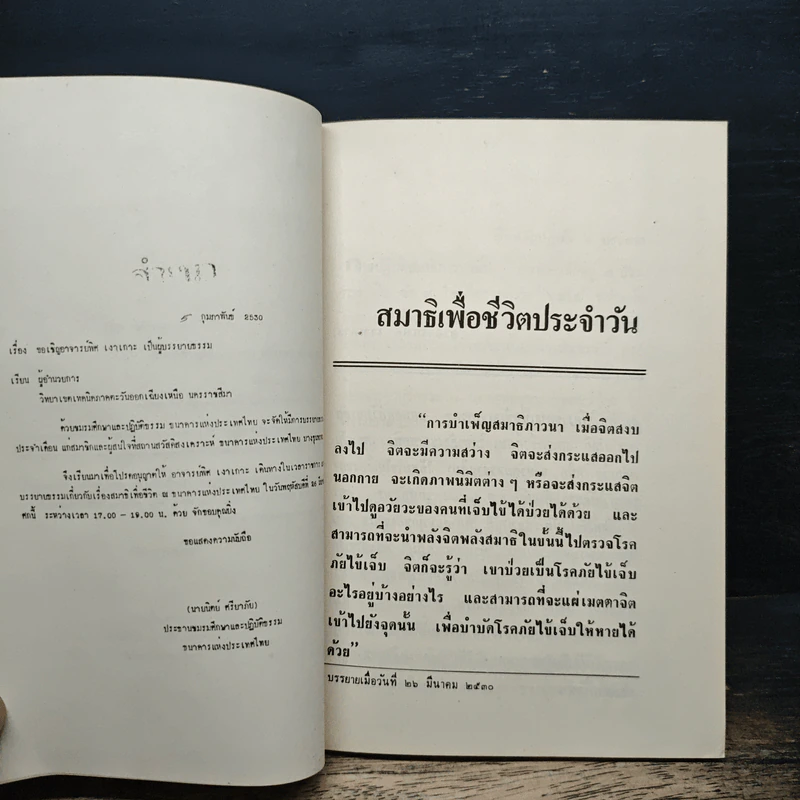 กุมภาพันธ์ 2530
เรื่อง ขอเชิญอาจารย์พิศ เงาเกาะ เป็นผู้บรรยายธรรม
เรียน ผู้อำนวยการ
วิทยาเขตเทคนิคภาคตะวันออกเฉียงเหนือ นครราชสีมา
ด้วยชมรมศึกษาและปฏิบัติธรรม ธนาคารแห่งประเทศไทย จะจัดให้มีการบรรยาย
ประจำเดือน แก่สมาชิกและผู้สนใจที่สถานสวัสดิสงเคราะห์ ธนาคารแห่งประเทศไทย บางขุน
จึงเรียนมาเพื่อโปรดอนุญาตให้ อาจารย์พิศ เงาเกาะ เดินทางในเวลาราชการ
บรรยายธรรมเกี่ยวกับเรื่องสมาธิเพื่อชีวิต ณ ธนาคารแห่งประเทศไทย ในวันพฤหัสบดีที่ ๒๖
ศกนี้ ระหว่างเวลา 17.00 - 19.00 น. ด้วย จักขอบคุณยิ่ง
ขอแสดงความนับถือ
(นายนิตย์ ศรียาภัย)
ประธานชมรมศึกษาและปฏิบัติธรรม
ธนาคารแห่งประเทศไทย
สมาธิเพื่อชีวิตประจำวัน
“การบำเพ็ญสมาธิภาวนา เมื่อจิตสงบ
ลงไป จิตจะมีความสว่าง จิตจะส่งกระแสออกไป
นอกกาย จะเกิดภาพนิมิตต่าง ๆ หรือจะส่งกระแสจิต
เข้าไปดูอวัยวะของคนที่เจ็บไข้ได้ป่วยได้ด้วย และ
สามารถที่จะนำพลังจิตพลังสมาธิในขั้นนี้ไปตรวจโรค
ภัยไข้เจ็บ จิตก็จะรู้ว่า เขาป่วยเป็นโรคภัยไข้เจ็บ
อะไรอยู่บ้างอย่างไร และสามารถที่จะแผ่เมตตาจิต
เข้าไปยังจุดนั้น เพื่อบำบัดโรคภัยไข้เจ็บให้หายได้
ด้วย”
บรรยายเมื่อวันที่ ๒๖ มีนาคม ๒๕๓๐